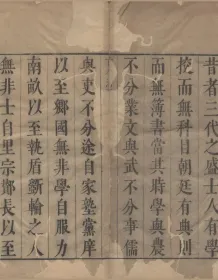 昔者三代之盛士人有學
挍而無科目朝廷有典則
而無簿書當其時學與農
不分業文與武不分事儒
與吏不分途自家塾黨庠
以至鄉國無非學自服力
南畝以至執盾斵輪之人
無非士自里宗鄰長以至